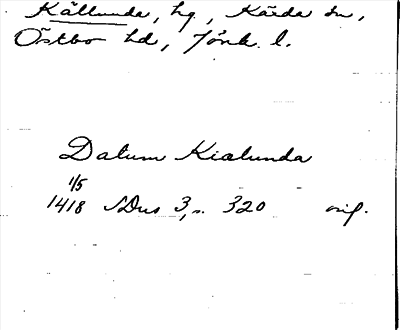 Källunda, hg., Kärda sn,
Östbo hd, Jönk. l.
Datum Kiælunda
1/5
1418 SDns 3, s. 320 orig.